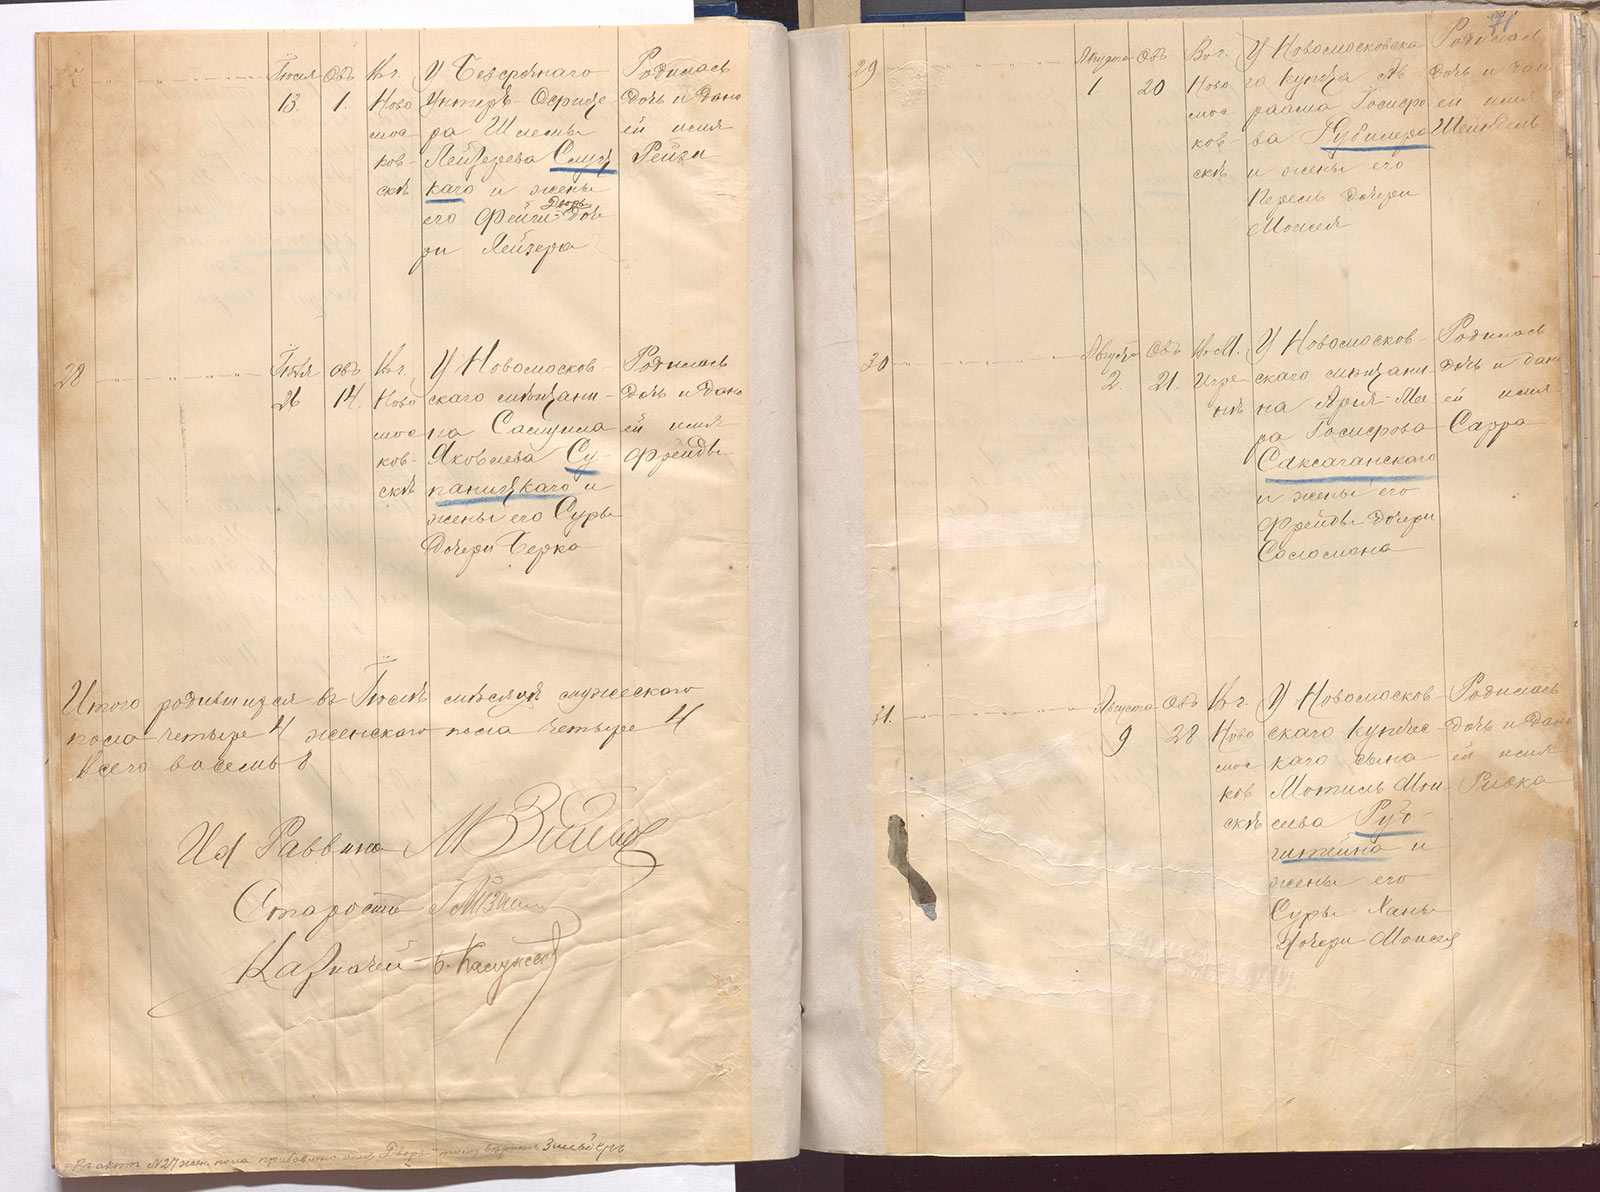 27
Июля
13.
Овъ
1.
Въ г.
Ново
мос
ков-
скѣ
У Безсрочнаго
Унтеръ-Офице
ра Шлемы
Лейзерева Слуц
каго и жены
его Фейги-Дворы доч
ри Лейзера
Родилась
дочь и дано
ей имя
Рейзи
28
Июля
26
Овъ
14.
Въ г.
Ново
мос
ков-
скѣ
У Новомосков-
скаго мѣщани-
на Самуила
Яковлева Су-
паницкаго и
жены его Суры
дочери Берка
Родилась
дочь и дано
ей имя
Фрейда
Итого родившихся въ Июлѣ мѣсяцѣ мужескаго
пола четыре 4 женскаго пола четыре 4
Всего восемь 8
И д Раввина М Зильбер
Староста
Казначей Б.
Въ актѣ №27 жен. пола прибавлено имя "Двора" тому вѣрить Зильберъ
71
29
Августа
1
Овъ
20
Въ г.
Ново
мос
ков-
скѣ
У Новомосковска
го купца Ав-
раама Іосифо
ва Нубилера
и жены его
Перель дочери
Моисея
Родилась
дочь и дан
ей имя
Шейндель
30
Августа
2.
Овъ
21.
Въ М.
Игре
нѣ
У Новомосков-
скаго мѣщани-
на Арія-Ме-
ра Іосифова
Саксаганскаго
и жены его
Фрейды дочери
Соломона
Родилась
дочь и дан
ей имя
Сарра
31.
Августа
9
Овъ
28
Въ г.
Ново
мос
ков
скѣ
У Новомосков-
скаго купчес-
каго сына
Мотиль Мои
сева Руб-
штейна и
жены его
Суры-Ханы
дочери Моисея
Родилась
дочь и дано
ей имя
Ривка